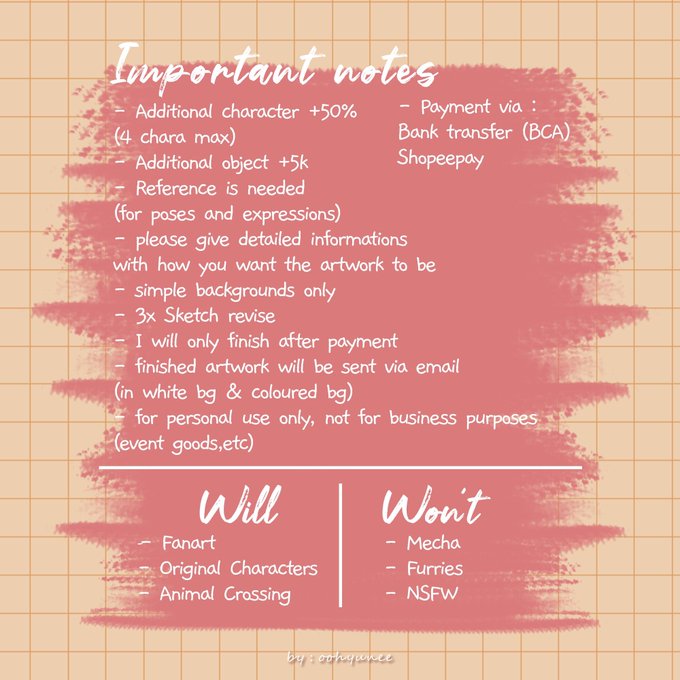 Important notes
- Additional character +50%
(4 chara max)
- Additional object +5k
- Reference is needed
(for poses and expressions)
- please give detailed informations
with how you want the artwork to be
- simple backgrounds only
- 3x Sketch revise
- I will only finish after payment
- finished artwork will be sent via email
(in white bg & coloured bg)
- for personal use only, not for business purposes
(event goods,etc)
- Payment via :
Bank transfer (BCA)
Shopeepay
Will
- Fanart
- Original Characters
- Animal Crossing
Won't
- Mecha
- Furries
- NSFW
by : oohyunee